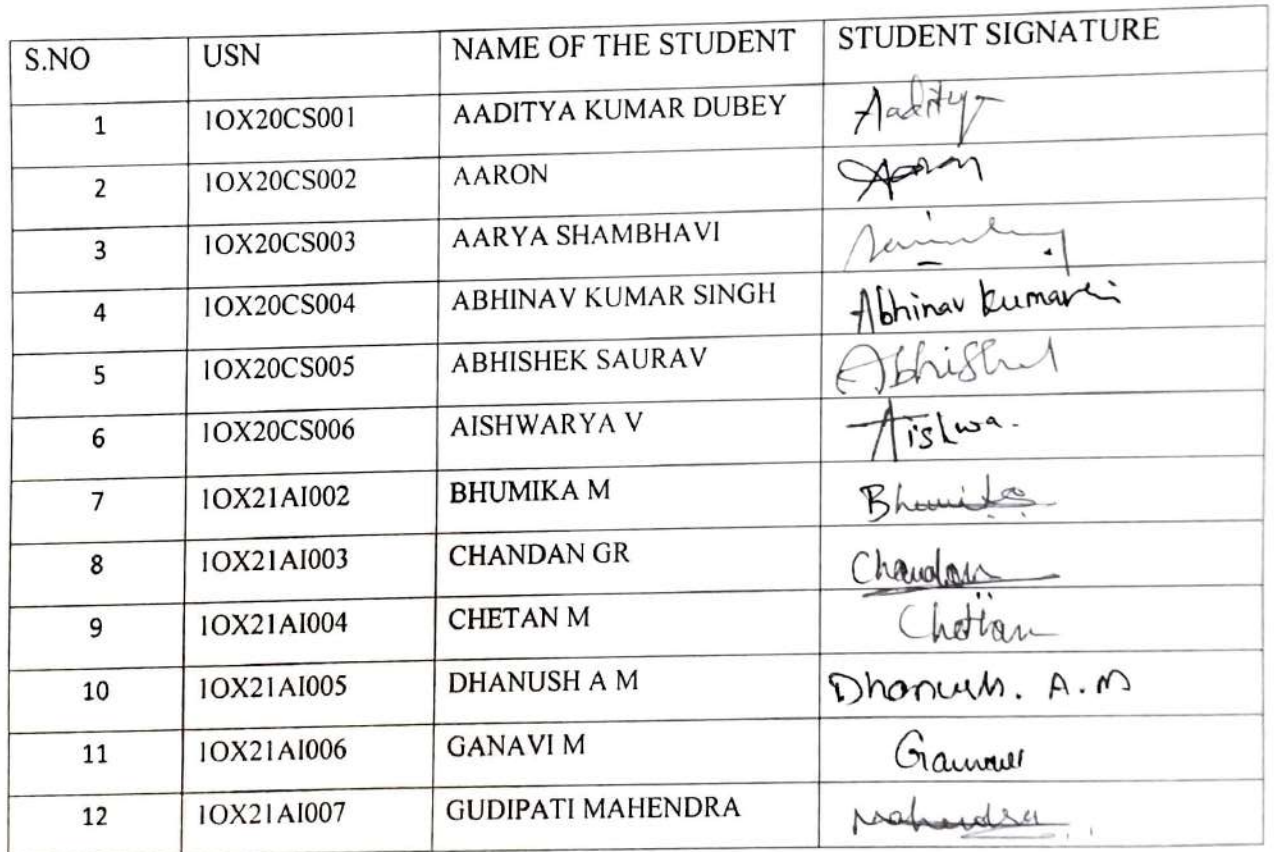 S.NO USN NAME OF THE STUDENT STUDENT SIGNATURE
1 1OX20CS001 AADITYA KUMAR DUBEY Aaditya
2 1OX20CS002 AARON Aaron
3 1OX20CS003 AARYA SHAMBHAVI
4 1OX20CS004 ABHINAV KUMAR SINGH Abhinav Kumar
5 1OX20CS005 ABHISHEK SAURAV
6 1OX20CS006 AISHWARYA V Aishwa.
7 1OX21AI002 BHUMIKA M Bhumika
8 1OX21AI003 CHANDAN GR Chandan
9 1OX21AI004 CHETAN M
10 1OX21AI005 DHANUSH A M Dhanush. A.M
11 1OX21AI006 GANAVI M
12 1OX21AI007 GUDIPATI MAHENDRA Mahendra